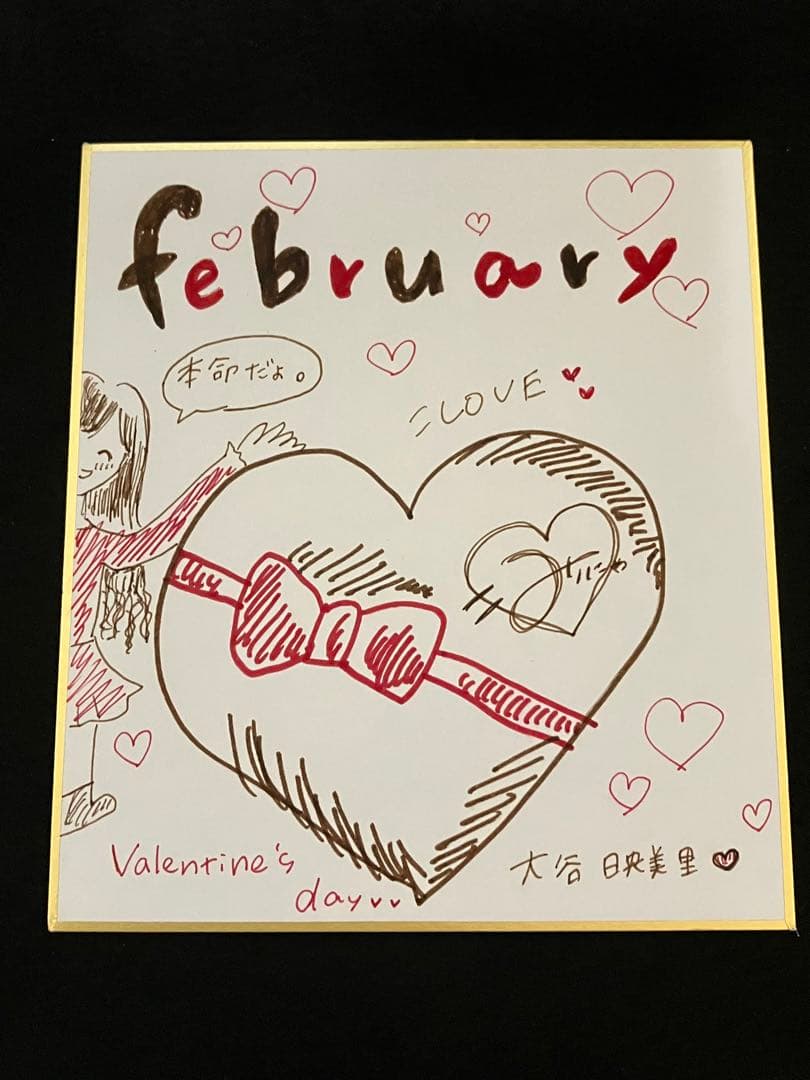 february
本命だよ。
=LOVE
Valentine's
day
大谷 映美里